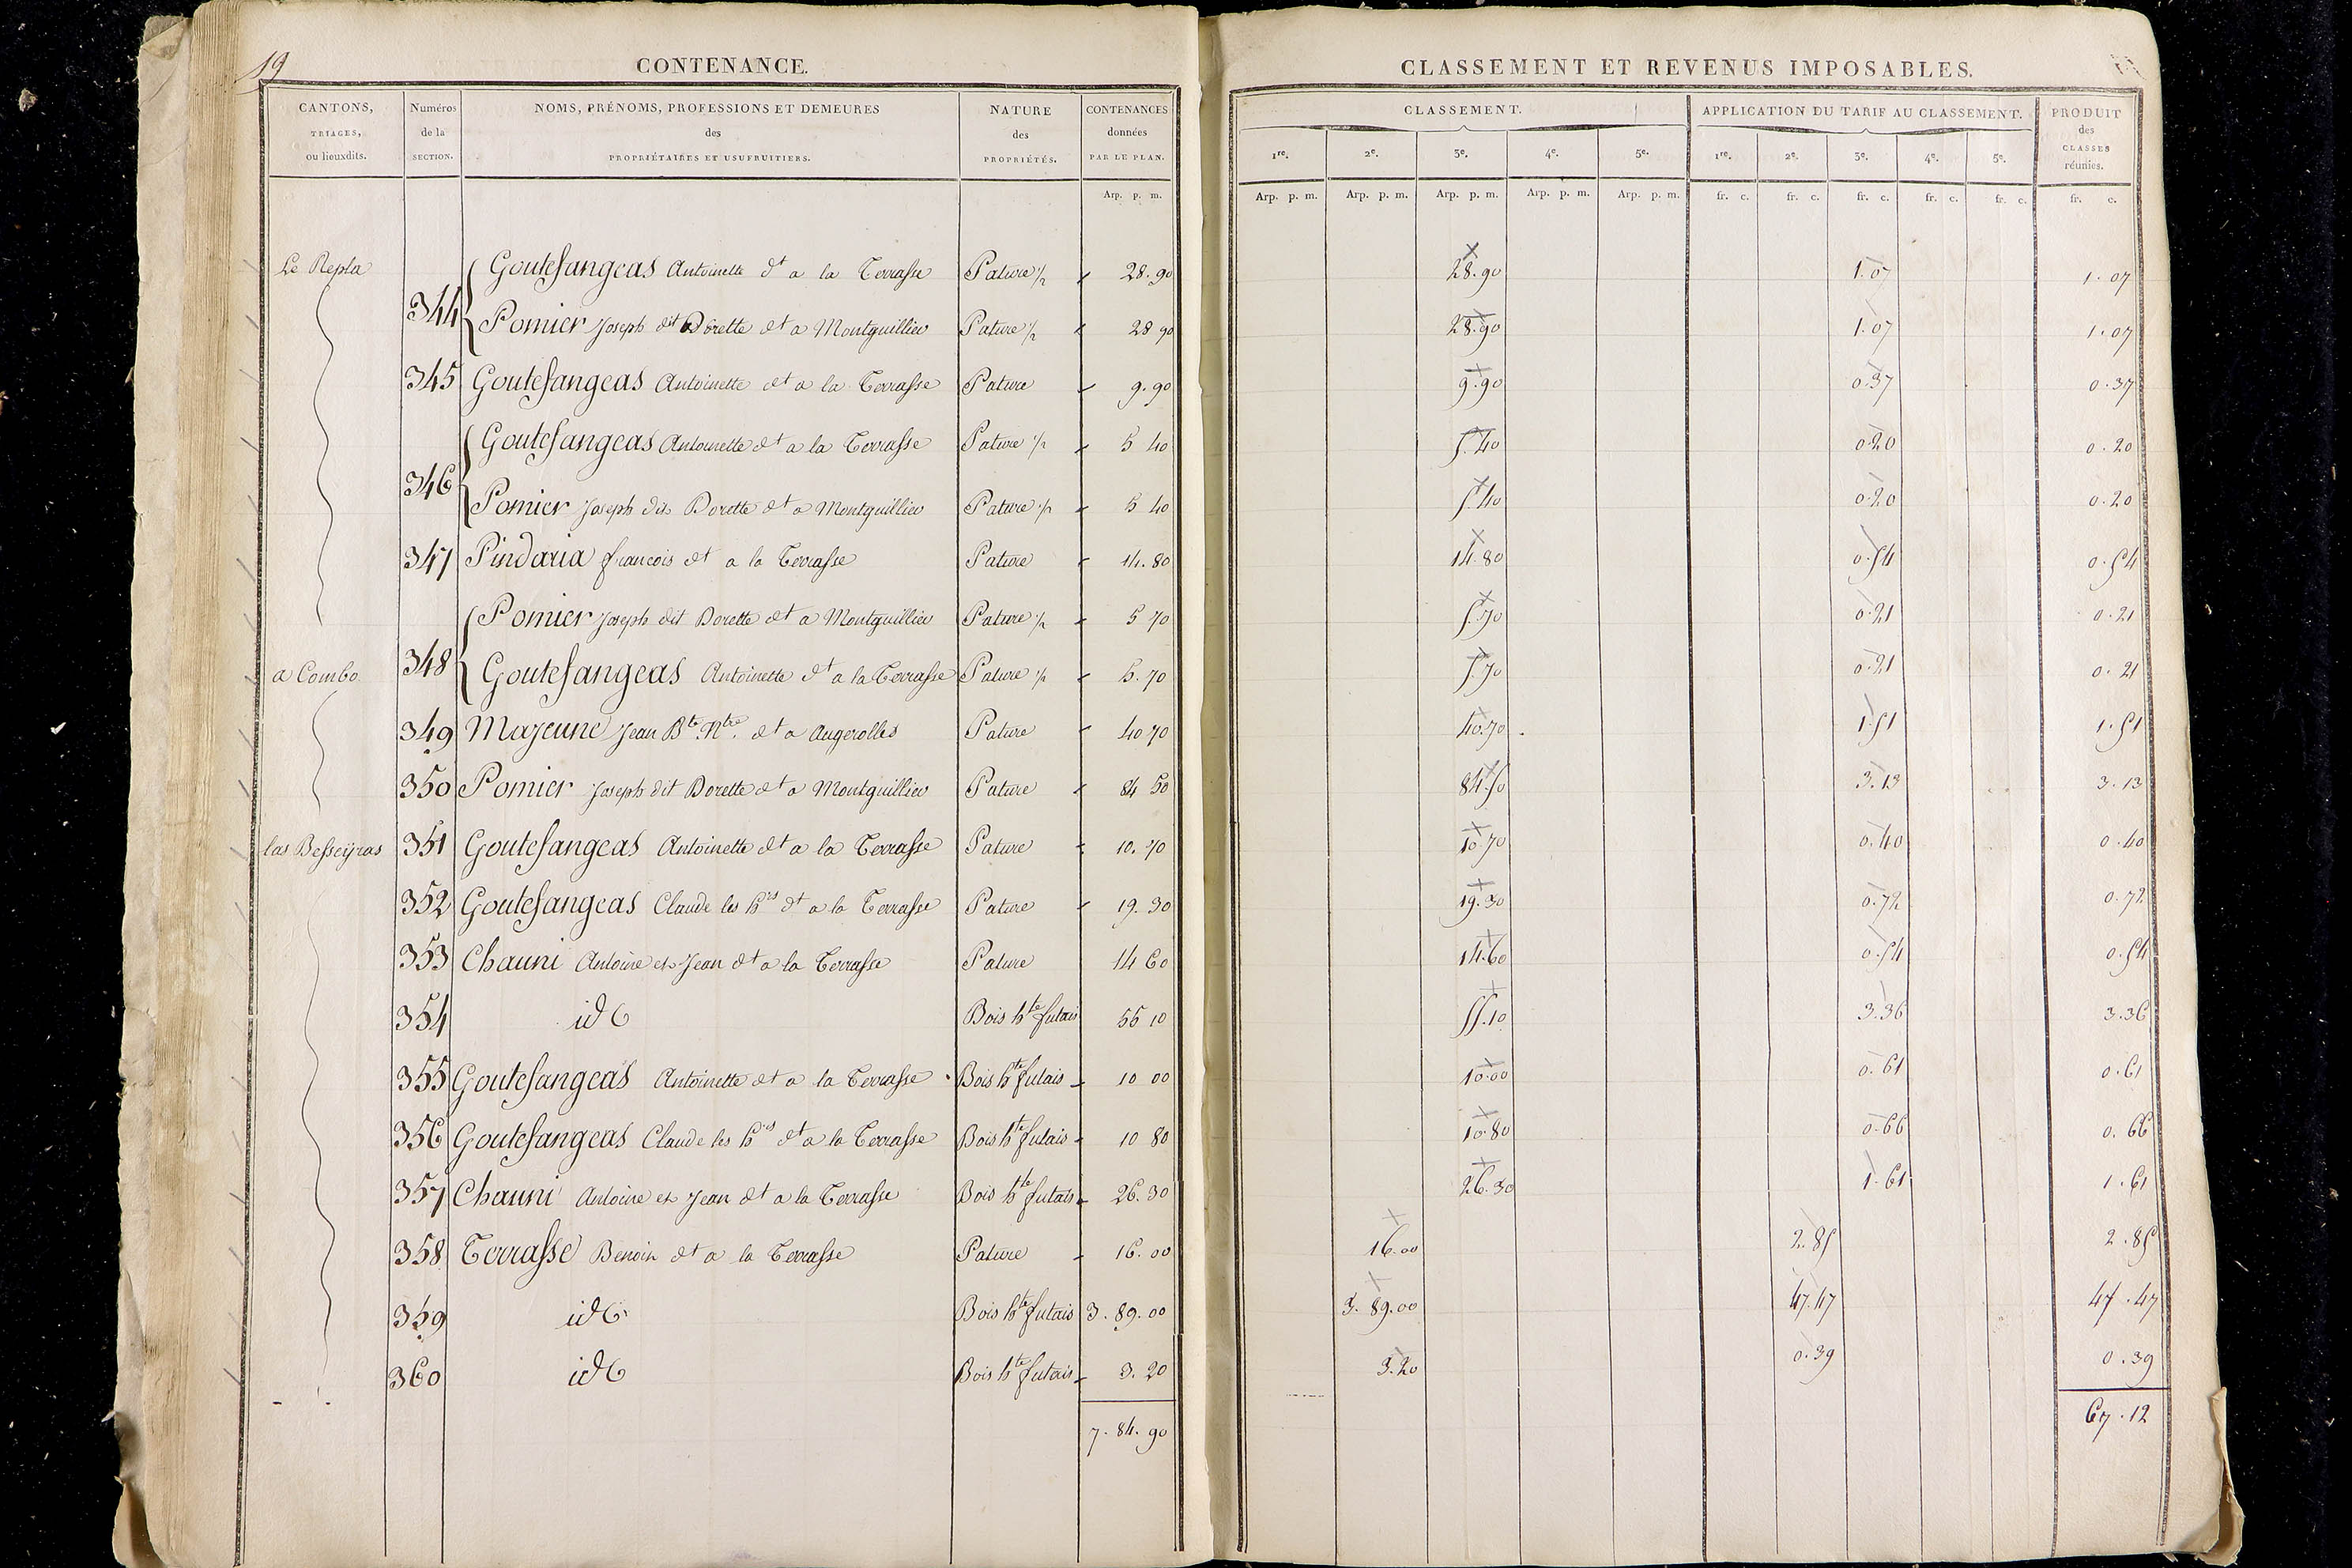 19
CONTENANCE.
CANTONS,
TRIAGES,
ou lieuxdits.
Numéros
de la
SECTION.
NOMS, PRÉNOMS, PROFESSIONS ET DEMEURES
des
PROPRIÉTAIRES ET USUFRUITIERS.
NATURE
des
PROPRIÉTÉS.
CONTENANCES
données
PAR LE PLAN.
Arp. p. m.
CLASSEMENT ET REVENUS IMPOSABLES.
CLASSEMENT.
APPLICATION DU TARIF AU CLASSEMENT.
PRODUIT
des
CLASSES
réunies.
1re. 2e. 3e. 4e. 5e. 1re. 2e. 3e. 4e. 5e.
Arp. p. m. Arp. p. m. Arp. p. m. Arp. p. m. Arp. p. m. fr. c. fr. c. fr. c. fr. c. fr. c. fr. c.
Le Repla Goutefangeas Antoinette dt a la Terrasse Pature ½ 28.90 28.90 1.07 1.07
344 Pomier Joseph dit Dorette dt a Montguillier Pature ½ 28 90 28.90 1.07 1.07
345 Goutefangeas Antoinette dt a la Terrasse Pature 9.90 9.90 0.37 0.37
Goutefangeas Antoinette dt a la Terrasse Pature ½ 5 40 5.40 0.20 0.20
346 Pomier Joseph dit Dorette dt a Montguillier Pature ½ 5 40 5.40 0.20 0.20
347 Pindaria francois dt a la Terrasse Pature 14.80 14.80 0.54 0.54
Pomier Joseph dit Dorette dt a Montguillier Pature ½ 5 70 5.70 0.21 0.21
a Combo 348 Goutefangeas Antoinette dt a la Terrasse Pature ½ 5.70 5.70 0.21 0.21
349 Majeune Jean Bte Ntre. dt a Augerolles Pature 40 70 40.70 1.51 1.51
350 Pomier Joseph dit Dorette dt a Montguillier Pature 84 50 84.50 3.13 3.13
las Besseyras 351 Goutefangeas Antoinette dt a la Terrasse Pature 10.70 10.70 0.40 0.40
352 Goutefangeas Claude les hrs dt a la Terrasse Pature 19.30 19.30 0.72 0.72
353 Chauni Antoine et Jean dt a la Terrasse Pature 14 60 14.60 0.54 0.54
354 id Bois hte futais 55 10 55.10 3.36 3.36
355 Goutefangeas Antoinette dt a la Terrasse Bois hte futais 10 00 10.00 0.61 0.61
356 Goutefangeas Claude les hrs dt a la Terrasse Bois hte futais 10 80 10.80 0.66 0.66
357 Chauni Antoine et Jean dt a la Terrasse Bois hte futais 26.30 26.30 1.61 1.61
358 Terrasse Benoit dt a la Terrasse Pature 16.00 16.00 2.85 2.85
359 id Bois hte futais 3.89.00 3.89.00 47.47 47.47
360 id Bois hte futais 3.20 3.20 0.39 0.39
7.84.90 67.12